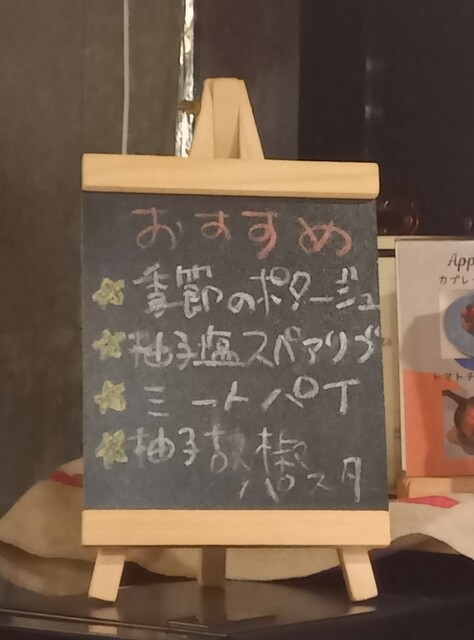 おすすめ
季節のポタージュ
柚子塩スペアリブ
ミートパイ
柚子胡椒
パスタ
App
カプレ
トマトチ